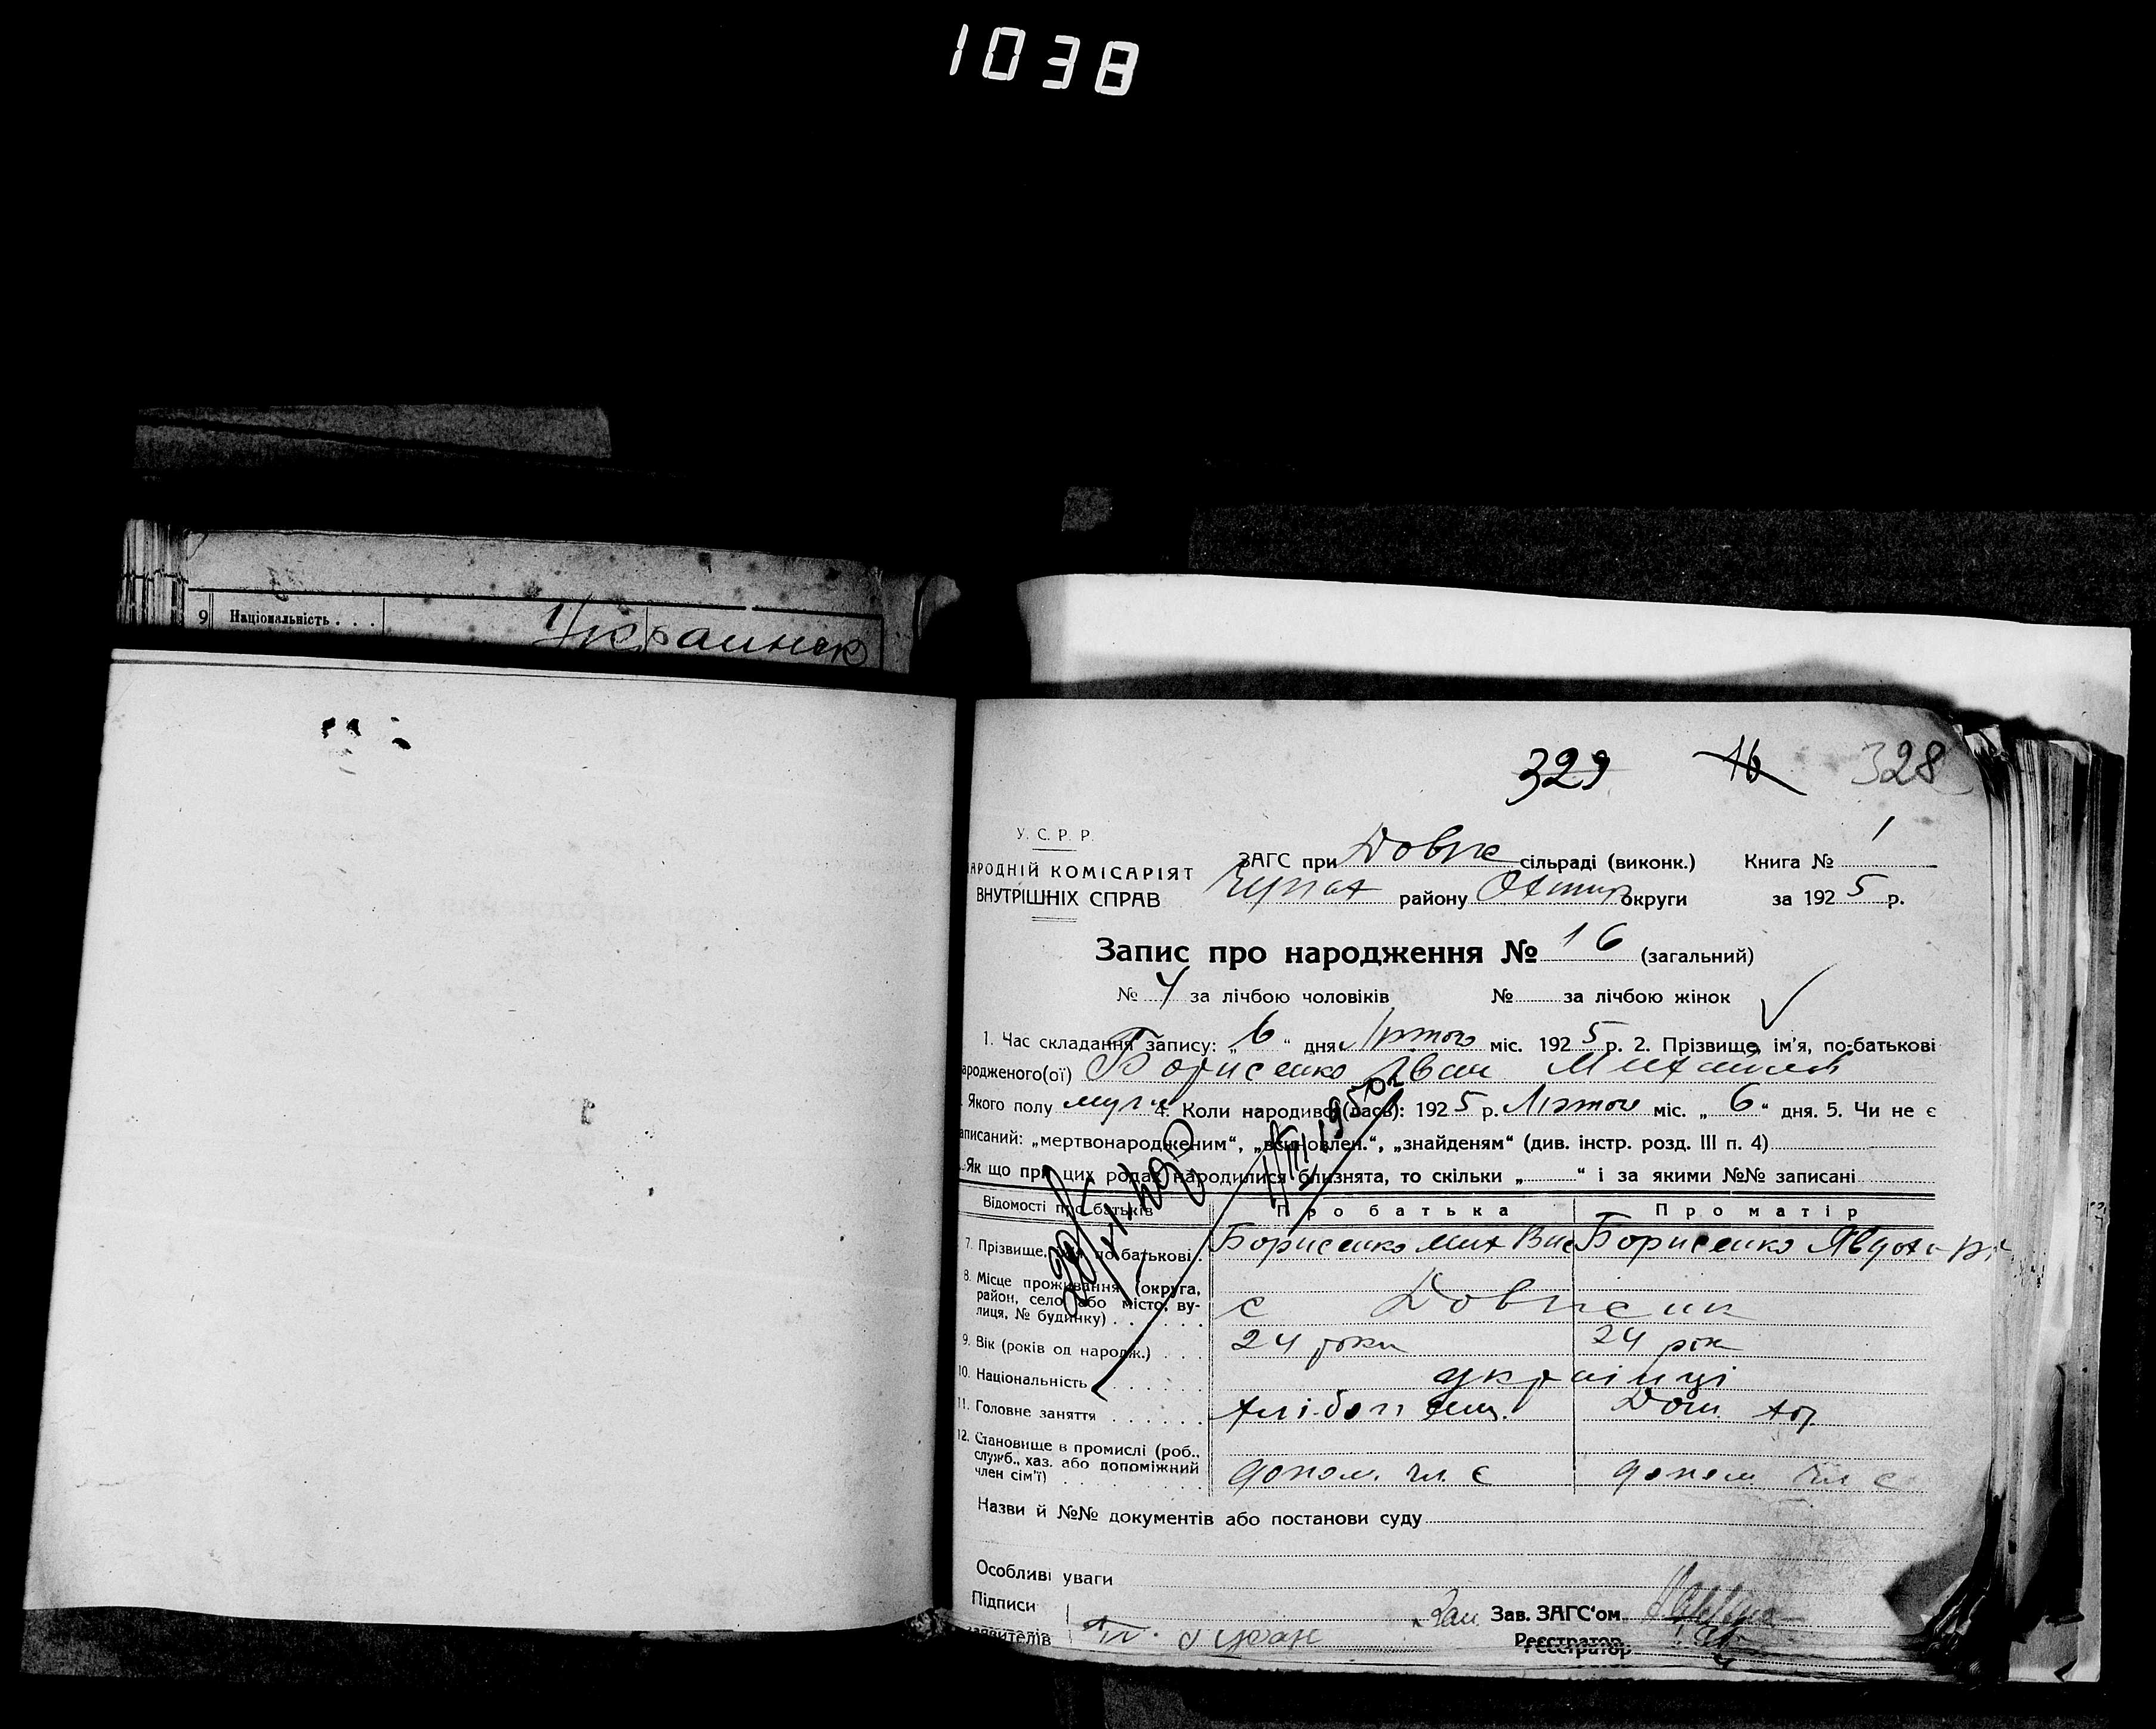 1038
9 Національність . . .
Украинск
329 16 328
У. С. Р. Р.
АРОДНІЙ КОМІСАРІЯТ
ВНУТРІШНІХ СПРАВ
ЗАГС при сільраді (виконк.) Книга № 1
району Охтир округи за 1925 р.
Запис про народження № 16 (загальний)
№ 4 за лічбою чоловіків № за лічбою жінок
1. Час складання запису: „6“ дня Лютого міс. 1925 р. 2. Прізвище, ім'я, по-батькові
ародженого(ої) Борисенко Іван Михайлов
Якого полу муж 4. Коли народився (лась): 1925 р. Лютого міс. „6“ дня. 5. Чи не є
аписаний: „мертвонародженим“, „всиновлен.“, „знайденям“ (див. інстр. розд. III п. 4)
Як що при цих родах народилися близнята, то скільки „ “ і за якими №№ записані
Відомості про батьків Про батька Про матір
7. Прізвище, ім'я по-батькові . Борисенко Мих Вас Борисенко Явдоха
8. Місце проживання (округа,
район, село або місто, ву-
лиця, № будинку) . . . . . . с
9. Вік (років од народж.) . . . 24 роки 24 рік
10. Національність . . . . . . українці
11. Головне заняття . . . . . . Дом.
12. Становище в промислі (роб.,
служб., хаз. або допоміжний
член сім'ї) . . . . . . допом. чл. с допом. чл с
Назви й №№ документів або постанови суду
Особливі уваги
Підписи
аявителів
Зам. Зав. ЗАГС'ом
Реєстратор